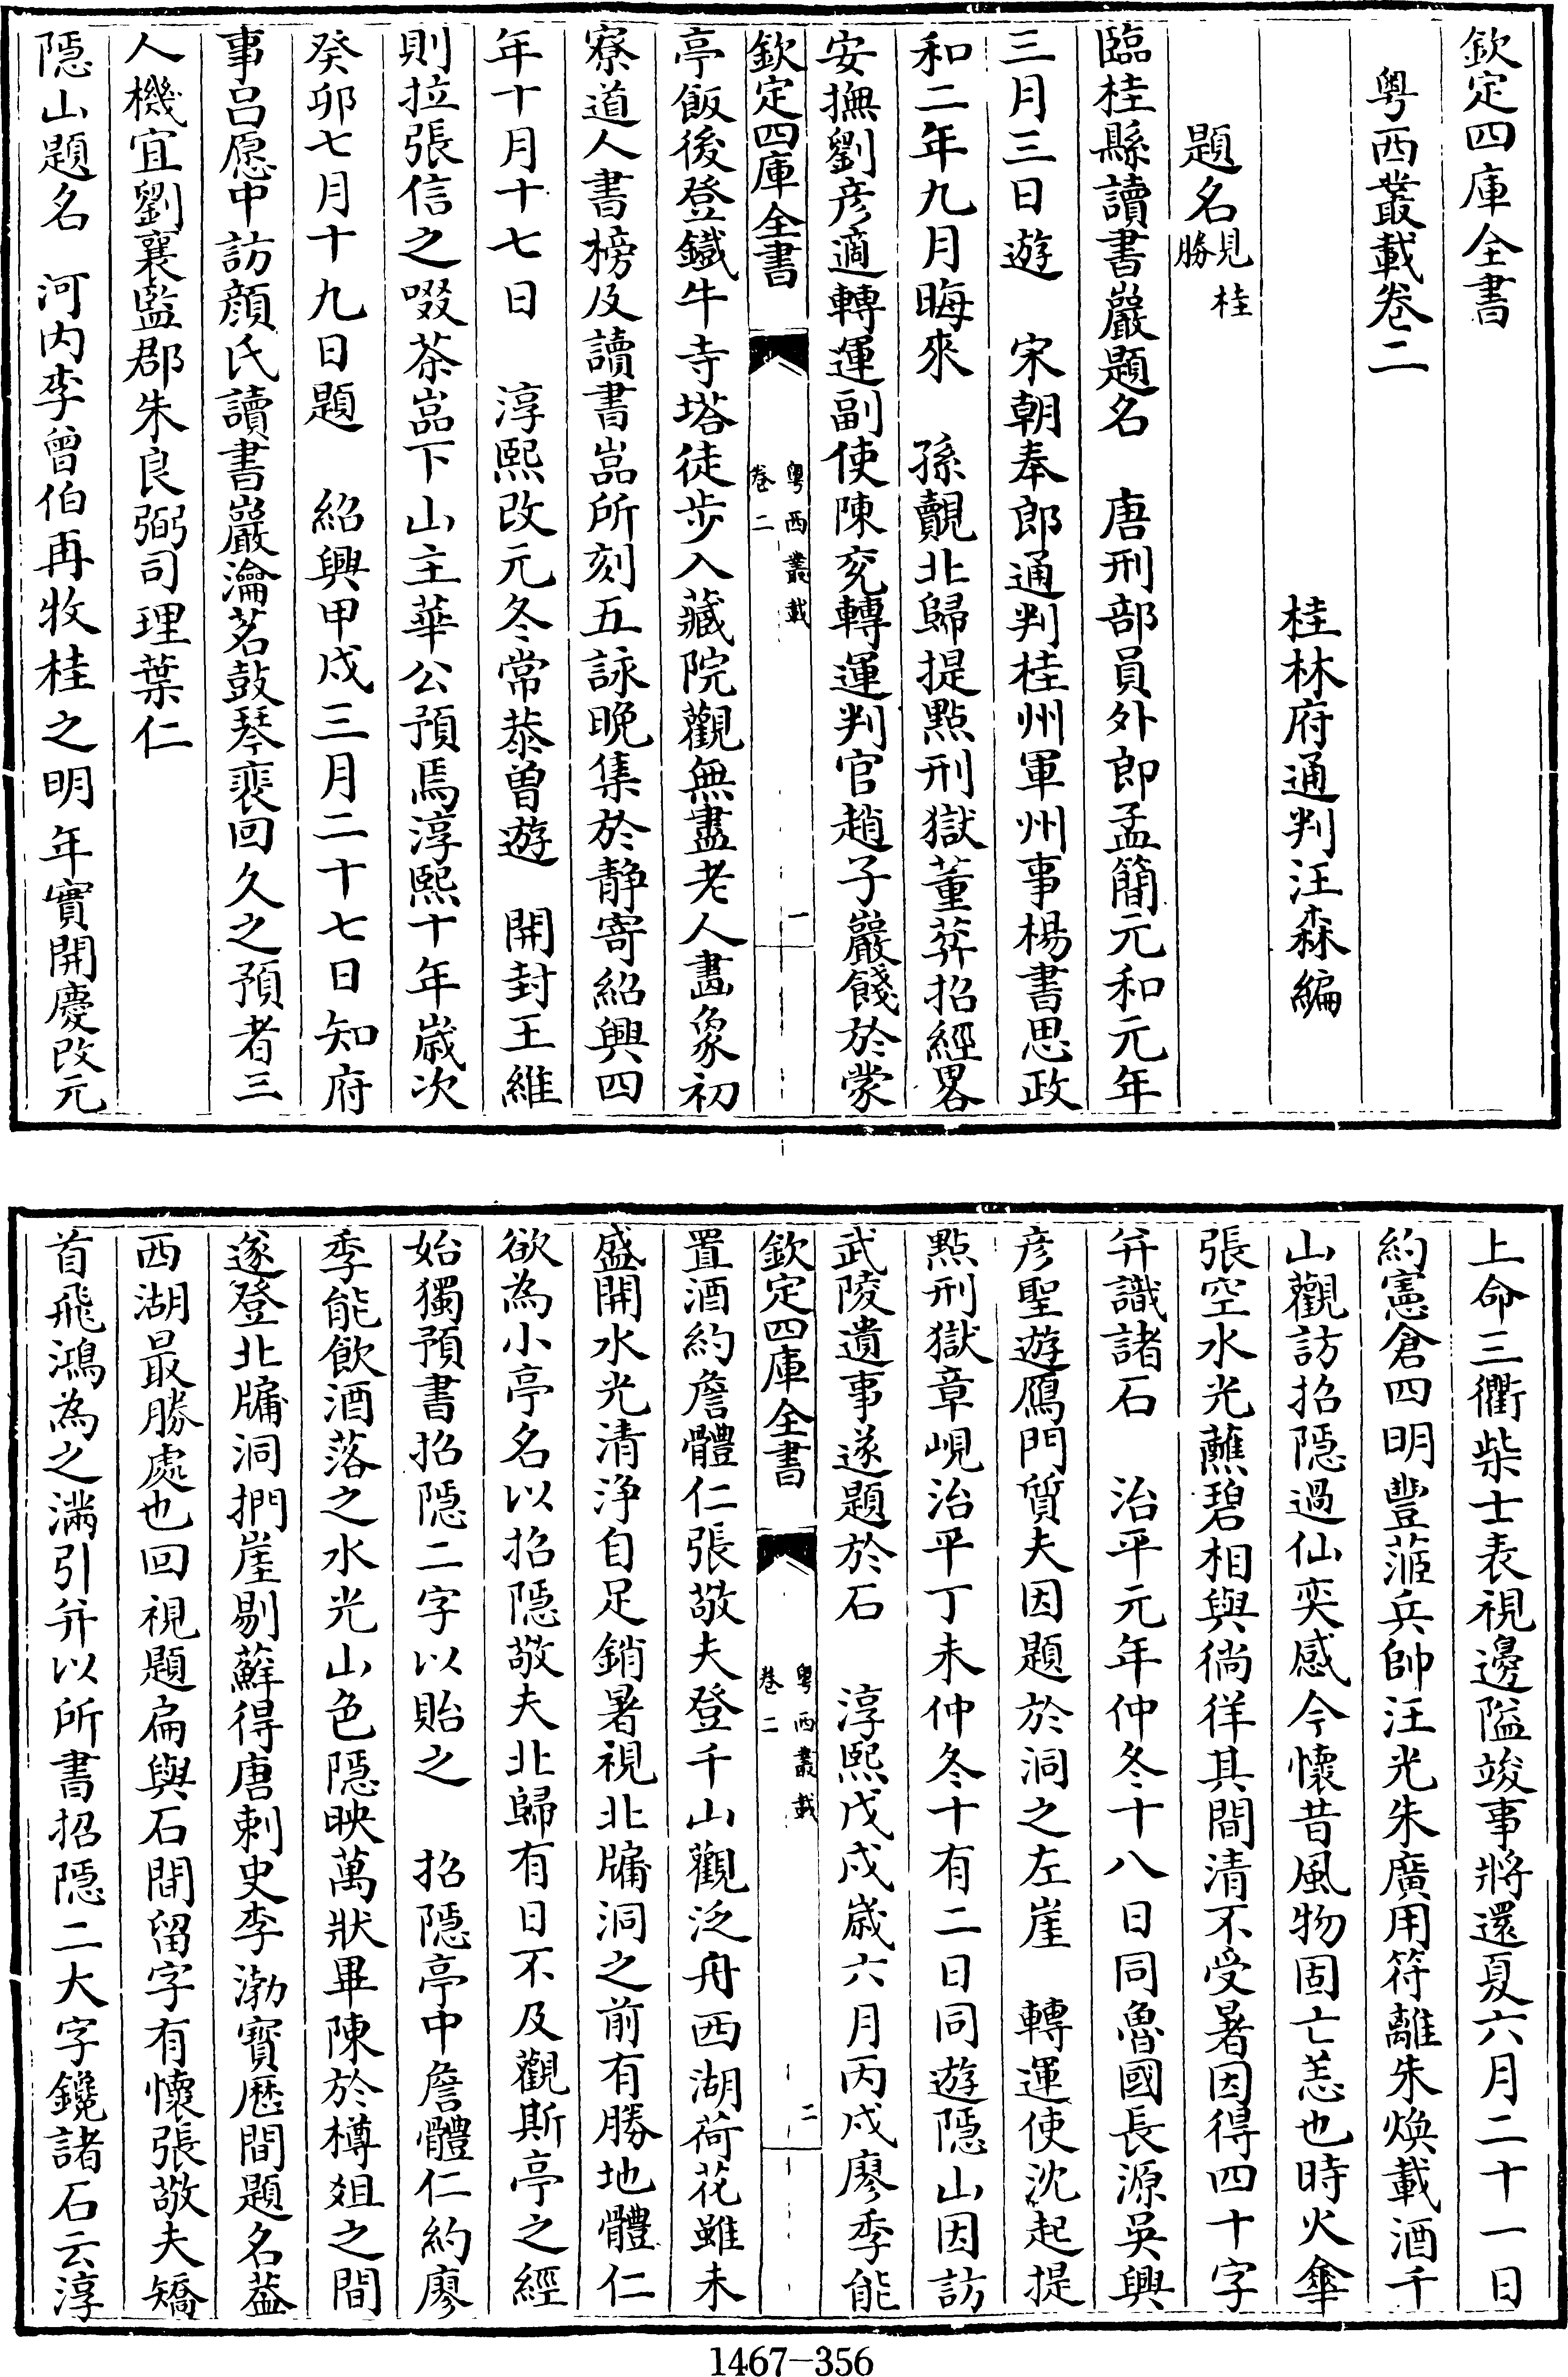 欽定四庫全書
粤西叢載卷二
桂林府通判汪森編
題名見桂勝
臨桂縣讀書巖題名　唐刑部員外郎孟簡元和元年
三月三日遊　宋朝奉郎通判桂州軍州事楊書思政
和二年九月晦來　孫覿北歸提點刑獄董莽招經畧
安撫劉彦適轉運副使陳兖轉運判官趙子巖餞於蒙
欽定四庫全書　粤西叢載卷二　一
亭飯後登鐵牛寺塔徒步入藏院觀無盡老人畫象初
寮道人書榜及讀書嵓所刻五詠晚集於静寄紹興四
年十月十七日　淳熙改元冬常㳟曾遊　開封王維
則拉張信之啜茶嵓下山主華公預焉淳熙十年歲次
癸卯七月十九日題　紹興甲戌三月二十七日知府
事吕愿中訪顔氏讀書巖瀹茗鼓琴裵回久之預者三
人機宜劉襄監郡朱良弼司理葉仁
隱山題名　河内李曾伯再牧桂之明年實開慶改元
上命三衢柴士表視邊隘竣事將還夏六月二十一日
約憲倉四明豐蒞兵帥汪光朱廣用符離朱煥載酒千
山觀訪招隱過仙奕感今懷昔風物固亡恙也時火傘
張空水光蘸碧相與徜徉其間清不受暑因得四十字
并識諸石　治平元年仲冬十八日同魯國長源吳興
彦聖遊鴈門質夫因題於洞之左崖　轉運使沈起提
點刑獄章峴治平丁未仲冬十有二日同遊隱山因訪
武陵遺事遂題於石　淳熙戊戌歲六月丙戌廖季能
欽定四庫全書　粤西叢載卷二　二
置酒約詹體仁張敬夫登千山觀泛舟西湖荷花雖未
盛開水光清浄自足銷暑視北牖洞之前有勝地體仁
欲為小亭名以招隱敬夫北歸有日不及觀斯亭之經
始獨預書招隱二字以貽之　招隱亭中詹體仁約廖
季能飲酒落之水光山色隱映萬狀畢陳於樽俎之間
遂登北牖洞捫崖剔蘚得唐刺史李渤寶歷間題名葢
西湖最勝處也回視題扁與石間留字有懷張敬夫矯
首飛鴻為之滿引并以所書招隱二大字鑱諸石云淳
1467-356